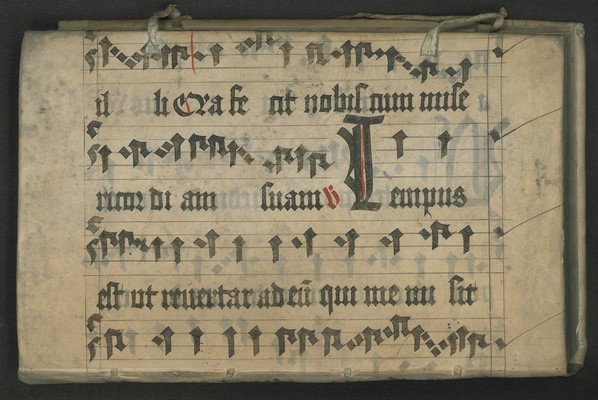 il li Qia fe cit nobiscum mise
ricor di am suam V Tempus
est ut revertar ad eū qui me mi sit